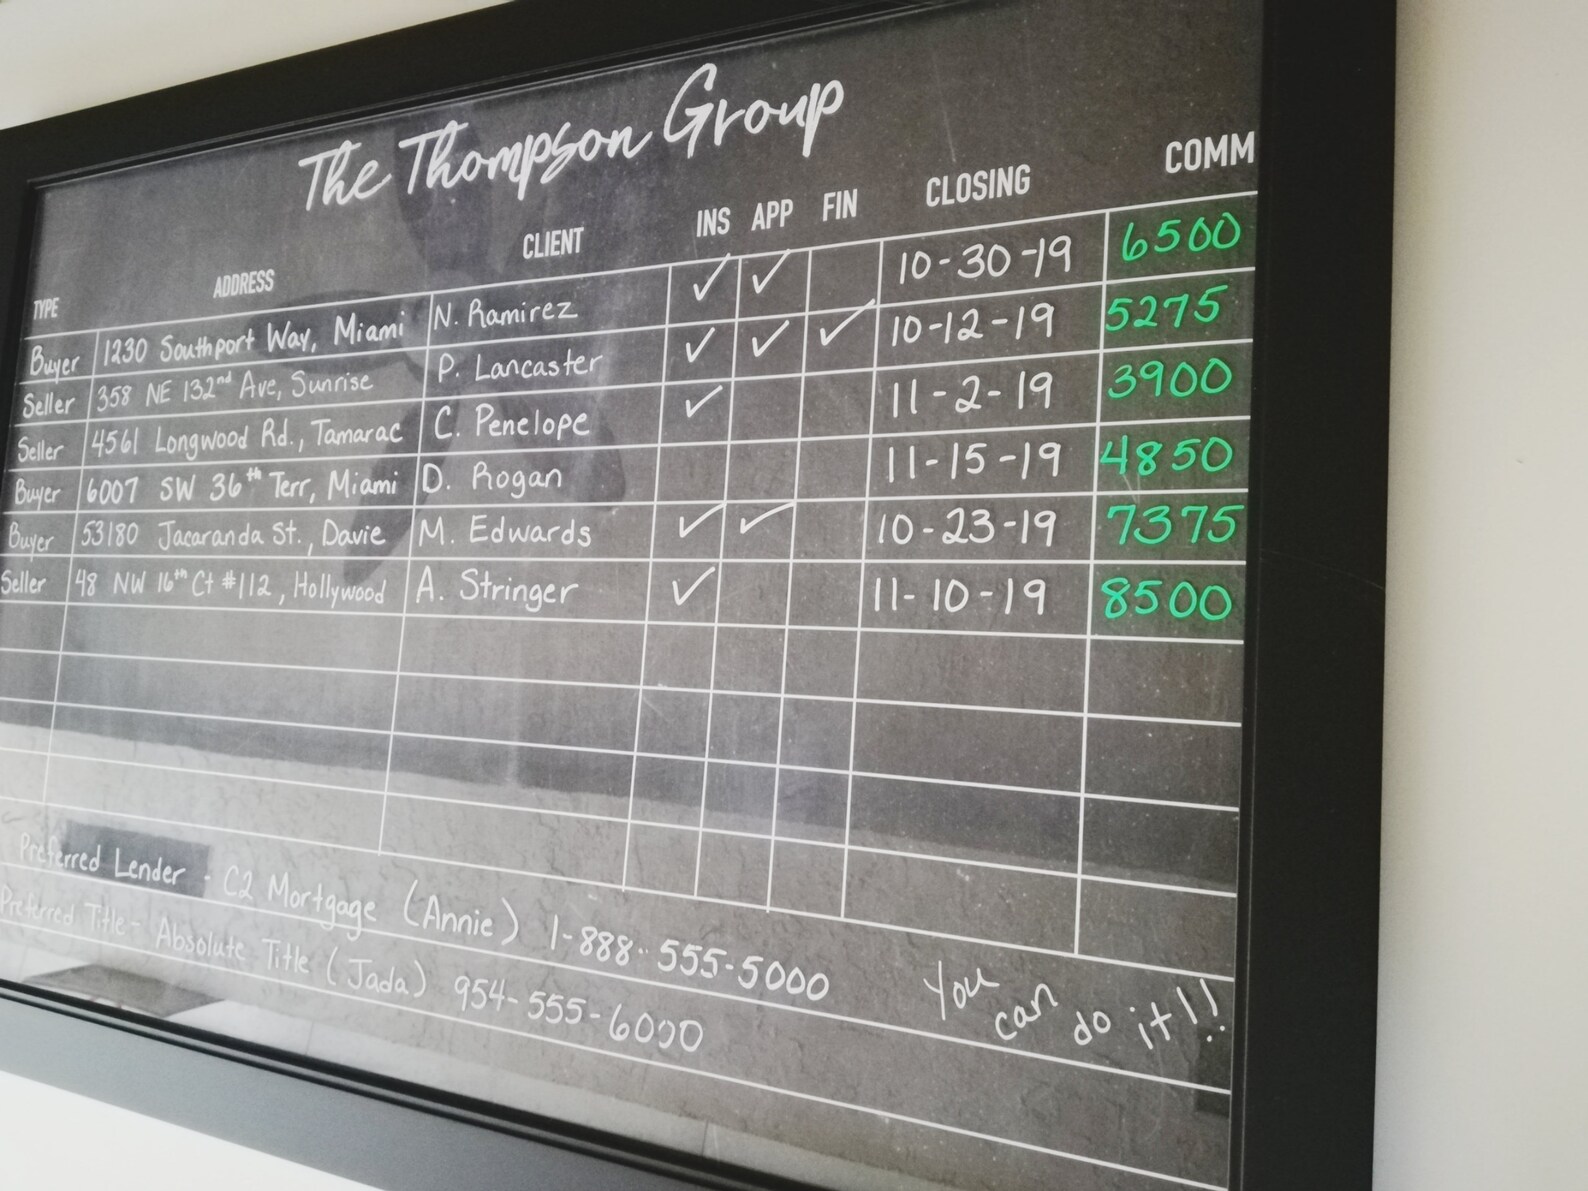 The Thompson Group
TYPE ADDRESS CLIENT INS APP FIN CLOSING COMM
Buyer 1230 Southport Way, Miami N. Ramirez ✓ ✓ 10-30-19 6500
Seller 358 NE 132nd Ave, Sunrise P. Lancaster ✓ ✓ ✓ 10-12-19 5275
Seller 4561 Longwood Rd., Tamarac C. Penelope ✓ 11-2-19 3900
Buyer 6007 SW 36th Terr, Miami D. Rogan 11-15-19 4850
Buyer 53180 Jacaranda St., Davie M. Edwards ✓ ✓ 10-23-19 7375
Seller 48 NW 16th Ct #112, Hollywood A. Stringer ✓ 11-10-19 8500
Preferred Lender - C2 Mortgage (Annie) 1-888-555-5000
Preferred Title - Absolute Title (Jada) 954-555-6000
You can do it!!